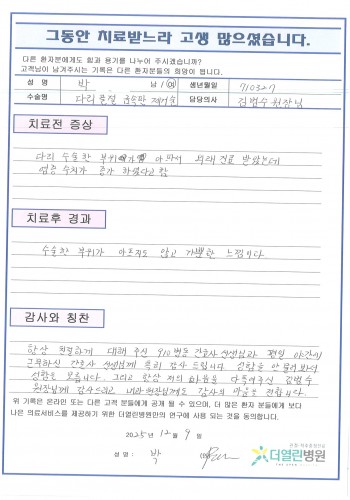 그동안 치료받느라 고생 많으셨습니다.
다른 환자분에게도 힘과 용기를 나누어 주시겠습니까?
고객님이 남겨주시는 기록은 다른 환자분들의 희망이 됩니다.
성 명 박 남 / 여 생년월일 710327
수술명 다리 골절 금속판 제거술 담당의사 김범수 원장님
치료전 증상
다리 수술한 부위가 아파서 외래 진료 받았는데
염증 수치가 증가 하였다고 함
치료후 경과
수술한 부위가 아프지도 않고 가뿐한 느낌이다.
감사와 칭찬
항상 친절하게 대해 주신 910병동 간호사 선생님과 평일 야간에
근무하신 간호사 선생님께 특히 감사 드립니다. 성함을 안 물어봐서
성함을 모릅니다. 그리고 항상 저의 마음을 다독여주신 김범수
원장님께 감사드리고 내과 원장님께도 감사의 마음을 전합니다.
위 기록은 온라인 또는 다른 고객 분들에게 공개 될 수 있으며, 더 많은 환자 분들에게 보다
나은 의료서비스를 제공하기 위한 더열린병원만의 연구에 사용 되는 것을 동의합니다.
2025년 12월 9일
성 명 : 박 (인)
더열린병원